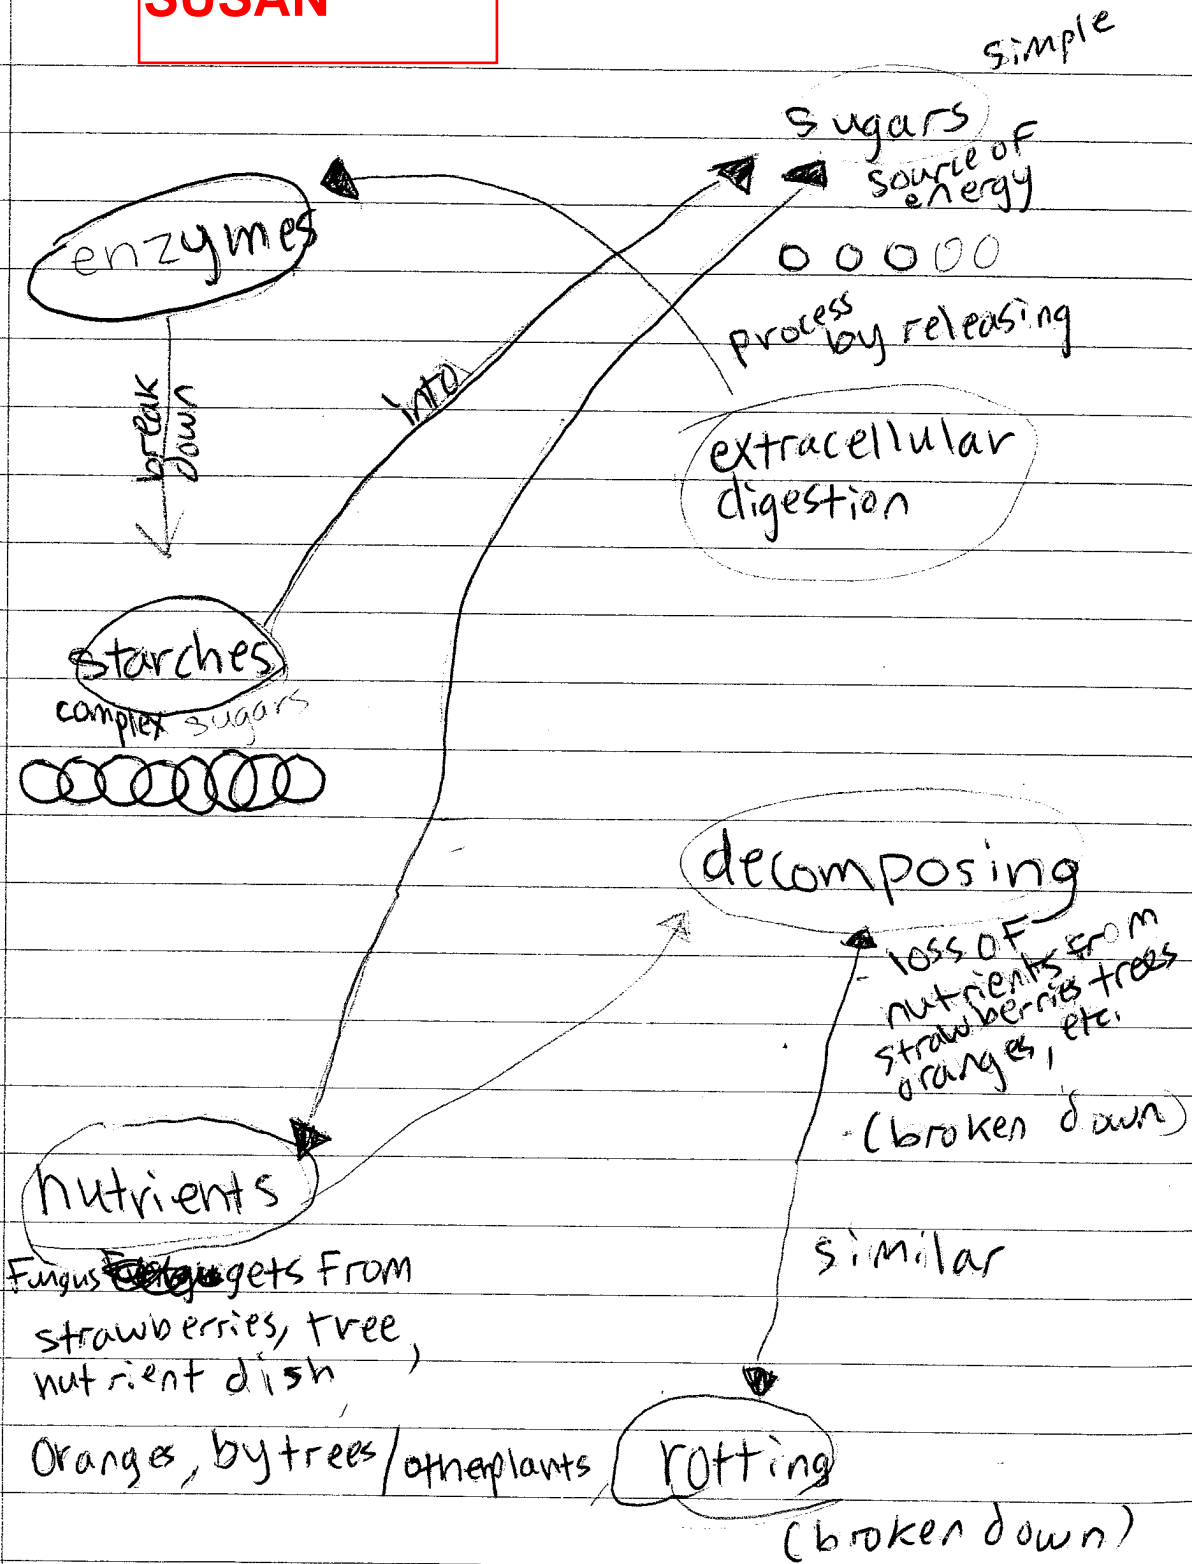 SUSAN
simple
sugars
source of
energy
enzymes
process
by releasing
into
break
down
extracellular
digestion
starches
complex sugars
decomposing
loss of
nutrients from
strawberries trees
oranges, etc.
(broken down)
nutrients
similar
Fungus gets from
strawberries, tree,
nutrient dish
Oranges, by trees/otherplants
rotting
(broken down)